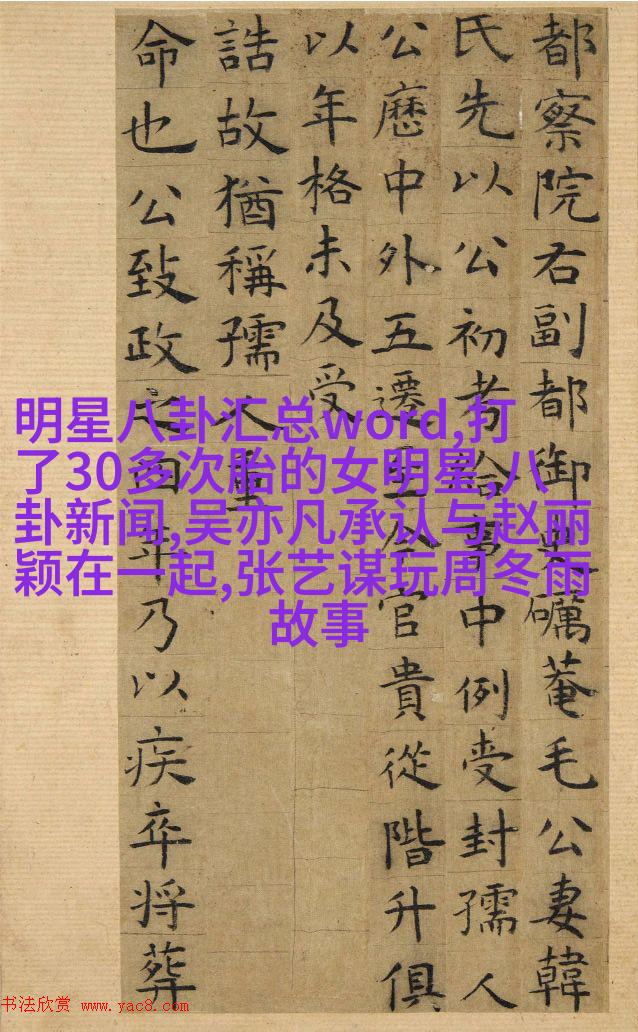 都察院右副都御礪菴毛公妻韓
氏先以公初考給事中例受封孺人
公歷中外五遷至今官貴從階升俱
以年格未及受
誥故猶稱孺人
命也公致政之四年乃以疾卒將葬
明星八卦汇总word,打
了30多次胎的女明星,八
卦新闻,吴亦凡承认与赵丽
颖在一起,张艺谋玩周冬雨
故事
书法欣赏 www.yac8.com